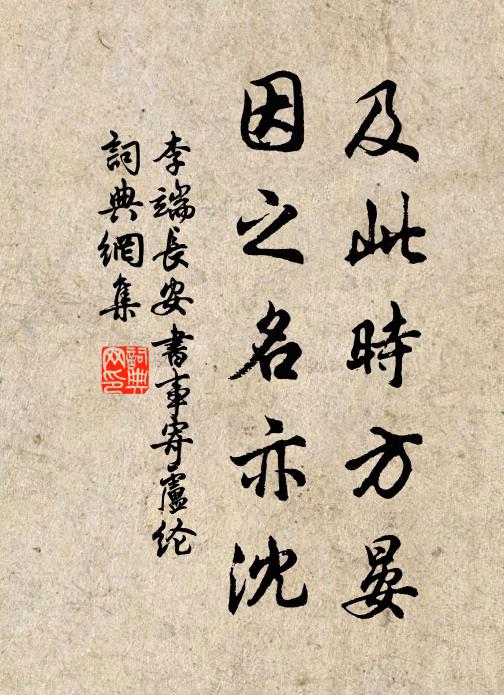 及此時方晏
因之名亦沈
李端長安書事寄盧纶
詞典網集
詞典网印